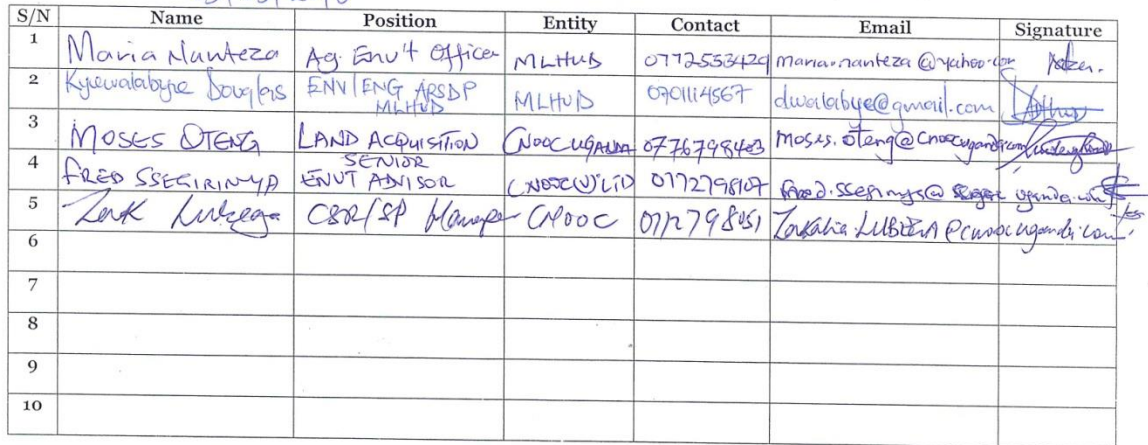 S/N Name Position Entity Contact Email Signature
1 Maria Nanteza Ag. Env't Officer MLHUD 0772553429 maria.nanteza@yahoo.com
2 Kyewalabye Douglas ENV/ENG ARSDP MLHUD MLHUD 0701114567 dwalabye@gmail.com
3 MOSES OTENG LAND ACQUISITION CNOOC UGANDA 0776798403 moses.oteng@cnoocuganda.com
4 FRED SSEGIRINYA SENIOR ENVT ADVISOR CNOOC(U) LTD 0772798107
5 Zak Lubega CSR/SP Manager CNOOC 0772798051 Zakalia.LUBEGA@cnoocuganda.com
6
7
8
9
10